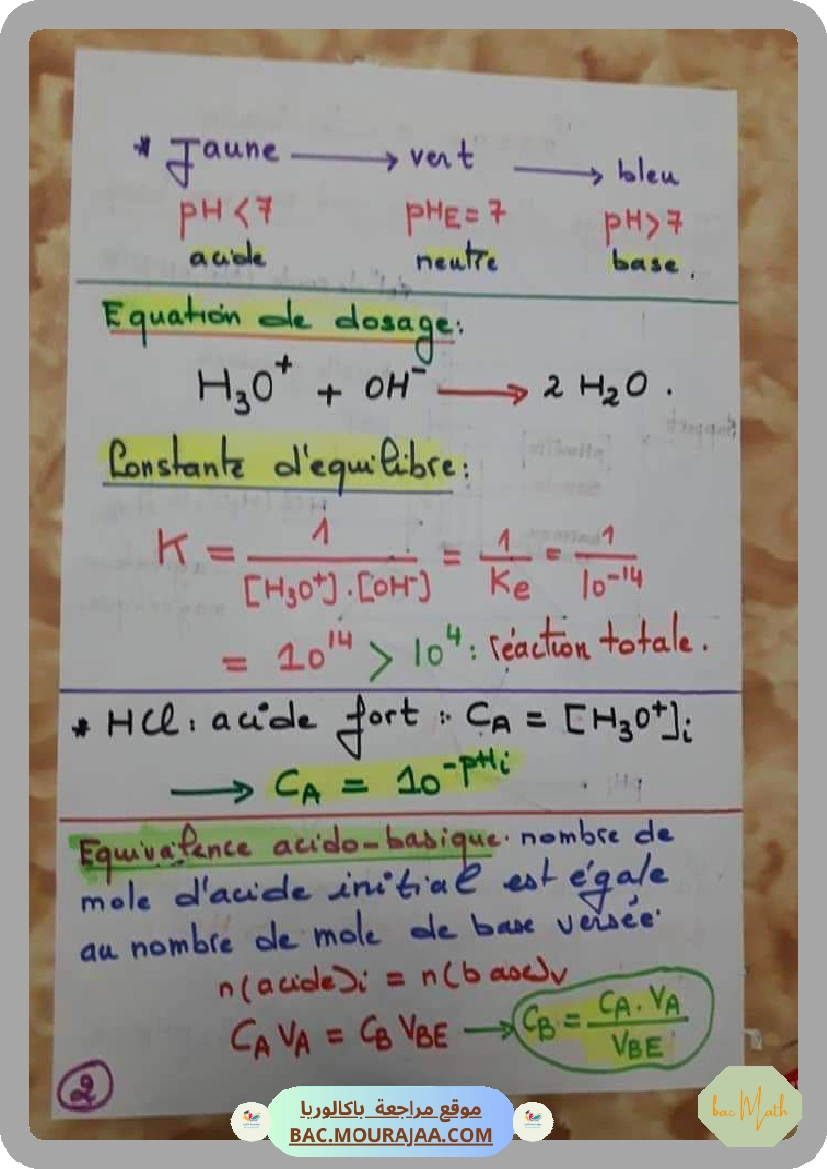 * Jaune ⟶ vert ⟶ bleu
pH < 7 pHE = 7 pH > 7
acide neutre base.
Equation de dosage:
H₃O⁺ + OH⁻ ⟶ 2 H₂O.
Constante d'equilibre:
K = 1 / [H₃O⁺].[OH⁻] = 1 / Ke = 1 / 10⁻¹⁴
= 10¹⁴ > 10⁴: réaction totale.
* HCl: acide fort: CA = [H₃O⁺]i
⟶ CA = 10^-pHi
Equivalence acido-basique. nombre de
mole d'acide initial est égale
au nombre de mole de base versée.
n(acide)i = n(base)v
CA VA = CB VBE ⟶ CB = CA . VA / VBE
2
موقع مراجعة باكالوريا
BAC.MOURAJAA.COM
bac Math